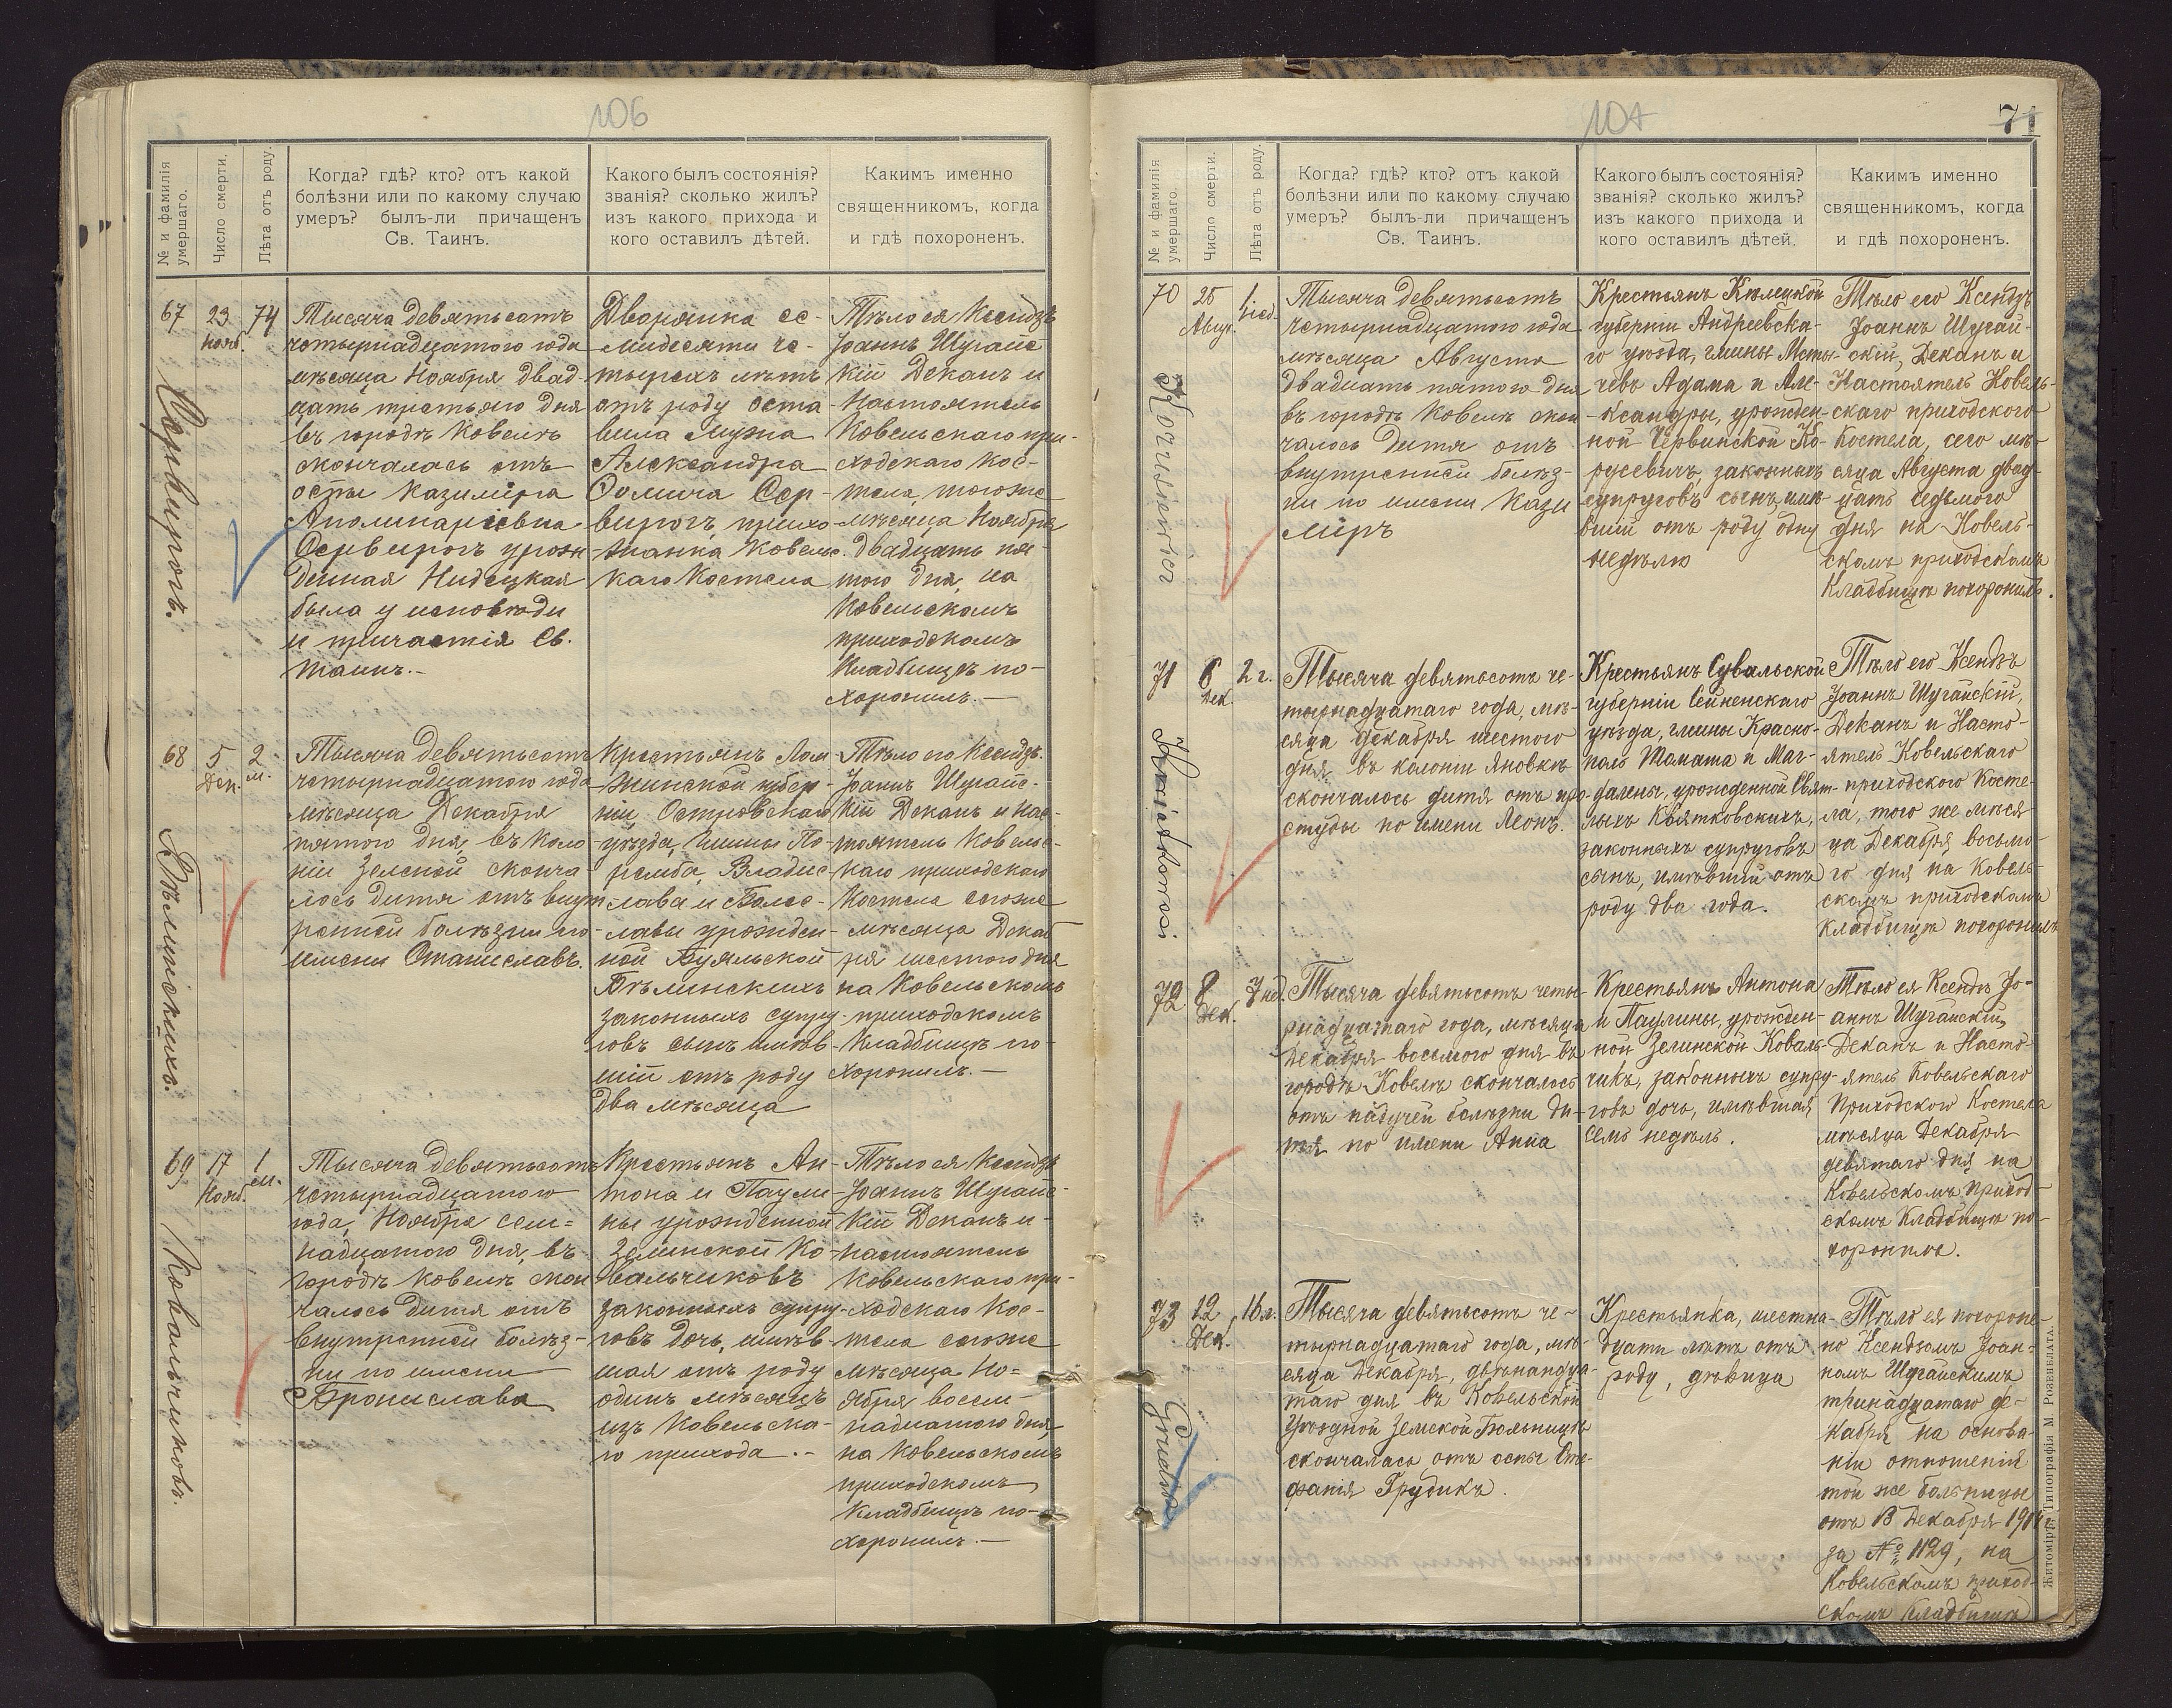 106
№ и фамилія
умершаго.
Число смерти.
Лѣта отъ роду.
Когда? гдѣ? кто? отъ какой
болѣзни или по какому случаю
умеръ? былъ-ли причащенъ
Св. Таинъ.
Какого былъ состоянія?
званія? сколько жилъ?
изъ какого прихода и
кого оставилъ дѣтей.
Какимъ именно
священникомъ, когда
и гдѣ похороненъ.
67
23
Нояб.
74
Тысяча девятьсотъ
четырнадцатого года
мѣсяца Ноября двад-
цать третьяго дня
въ городѣ Ковелѣ
скончалась отъ
оспы Казиміра
Аполинаріевна
Сервирогъ урож-
денная Нидецкая
была у исповѣди
и причастія Св.
таинъ.-
Дворянка се-
мидесяти че-
тырехъ лѣтъ
отъ роду оста-
вила мужа
Александра
Фомича Сер-
вирогъ, прихо-
жанка Ковельс-
каго Костела
Тѣло ея Ксендзъ
Іоаннъ Шугайс-
кій Деканъ и
Настоятель
Ковельскаго при-
ходскаго Кос-
тела, тогоже
мѣсяца Ноября
двадцать пя-
того дня, на
Ковельскомъ
приходскомъ
Кладбищѣ по-
хоронилъ.-
68
5
Дек.
2
м.
Бѣлинскихъ.
Тысяча девятьсотъ
четырнадцатого года
мѣсяца Декабря
пятого дня, въ Коло
ніи Зеленой сконча
лось дитя отъ внут
ренней болѣзни по
имени Станиславъ.
Крестьянъ Лом
жинской губер-
ніи, Островскаго
уѣзда, гмины По-
ремба, Владис-
лава и Болес-
лавы урожден-
ной Буяльской
Бѣлинскихъ
законныхъ супру-
говъ сынъ имѣв-
шій отъ роду
два мѣсяца
Тѣло его Ксендзъ
Іоаннъ Шугайс-
кій Деканъ и Нас-
тоятель Ковельс-
каго приходскаго
Костела сегоже
мѣсяца Декаб
ря шестого дня
на Ковельскомъ
приходскомъ
Кладбищѣ по-
хоронилъ.-
69
17
Нояб.
1
м.
Ковальчиковъ.
Тысяча девятьсотъ
четырнадцатого
года, Ноября сем-
надцатого дня, въ
городѣ Ковелѣ скон
чалось дитя отъ
внутренней болѣз-
ни по имени
Бронислава
Крестьянъ Ан-
тона и Паули-
ны урожденной
Зелинской Ко-
вальчиковъ
законныхъ супру-
говъ дочь, имѣв-
шая отъ роду
одинъ мѣсяцъ
изъ Ковельска-
го прихода.-
Тѣло ея Ксендзъ
Іоаннъ Шугайс-
кій Деканъ и-
настоятель
Ковельскаго при-
ходскаго Кос-
тела сегоже
мѣсяца Но-
ября восем-
надцатого дня,
на Ковельскомъ
приходскомъ
Кладбищѣ по-
хоронилъ.-
71
№ и фамилія
умершаго.
Число смерти.
Лѣта отъ роду.
Когда? гдѣ? кто? отъ какой
болѣзни или по какому случаю
умеръ? былъ-ли причащенъ
Св. Таинъ.
Какого былъ состоянія?
званія? сколько жилъ?
изъ какого прихода и
кого оставилъ дѣтей.
Какимъ именно
священникомъ, когда
и гдѣ похороненъ.
70
25
Авгус.
1 нед.
Тысяча девятьсотъ
четырнадцатого года
мѣсяца Августа
двадцать пятого дня
въ городѣ Ковелѣ скон
чалось дитя отъ
внутренней болѣз-
ни по имени Кази
міръ
Крестьянъ Кѣлецкой
губерніи Андреевска-
го уѣзда, гмины Мсты-
чевъ Адама и Але-
ксандры, урожден-
ной Червинской Ко-
русевичъ, законныхъ
супруговъ сынъ, имѣ-
вшій отъ роду одну
недѣлю
Тѣло его Ксендзъ
Іоаннъ Шугай-
скій, Деканъ и
Настоятель Ковель-
скаго приходского
Костела, сего мѣ-
сяца Августа двад-
цать седьмого
дня на Ковель-
скомъ приходскомъ
Кладбищѣ похоронилъ.
71
6
Дек.
2 г.
Kwiatkowski
Тысяча девятьсотъ че-
тырнадцатаго года, мѣ-
сяца Декабря шестого
дня въ колоніи Яновкѣ
скончалось дитя отъ про-
студы по имени Леонъ.
Крестьянъ Сувальской
губерніи Сейненскаго
уѣзда, гмины Красно-
поль Томаша и Маг-
далены, урожденной Свят-
лыхъ Квятковскихъ,
законныхъ супруговъ
сынъ, имѣвшій отъ
роду два года.
Тѣло его Ксендзъ
Іоаннъ Шугайскій,
Деканъ и Насто-
ятель Ковельскаго
приходского Косте-
ла, того же мѣся
ца Декабря восьмо-
го дня на Ковель-
скомъ приходскомъ
Кладбищѣ похоронилъ
72
8
Дек.
7 нед.
Тысяча девятьсотъ четы-
рнадцатаго года, мѣсяца
Декабря восьмого дня въ
городѣ Ковелѣ скончалось
отъ падучей болѣзни ди-
тя по имени Анна
Крестьянъ Антона
и Паулины, урожден-
ной Зелинской Коваль-
чикъ, законныхъ супру-
говъ дочь, имѣвшая
семь недѣль.
Тѣло ея Ксендзъ Іо-
аннъ Шугайскій,
Деканъ и Насто-
ятель Ковельскаго
Приходского Костела
мѣсяца Декабря
девятаго дня на
Ковельскомъ Приход-
скомъ Кладбищѣ по-
хоронилъ.
73
12
Дек.
16 л.
Grudik
Тысяча девятьсотъ че-
тырнадцатаго года, мѣ-
сяца Декабря, двѣнандца-
таго дня въ Ковельской
Уѣздной Земской Больницѣ
скончалась отъ оспы Сте-
фанія Грудикъ.
Крестьянка, шестна-
дцати лѣтъ отъ
роду, дѣвица
Тѣло ея похороне-
но Ксендзомъ Іоан-
номъ Шугайскимъ
тринадцатаго де-
кабря на основа-
ніи отношенія
той же больницы
отъ 13 Декабря 1914 г.
за № 1129, на
Ковельскомъ приход-
скомъ Кладбищѣ
Житоміръ, Типографія М. Розенблата.